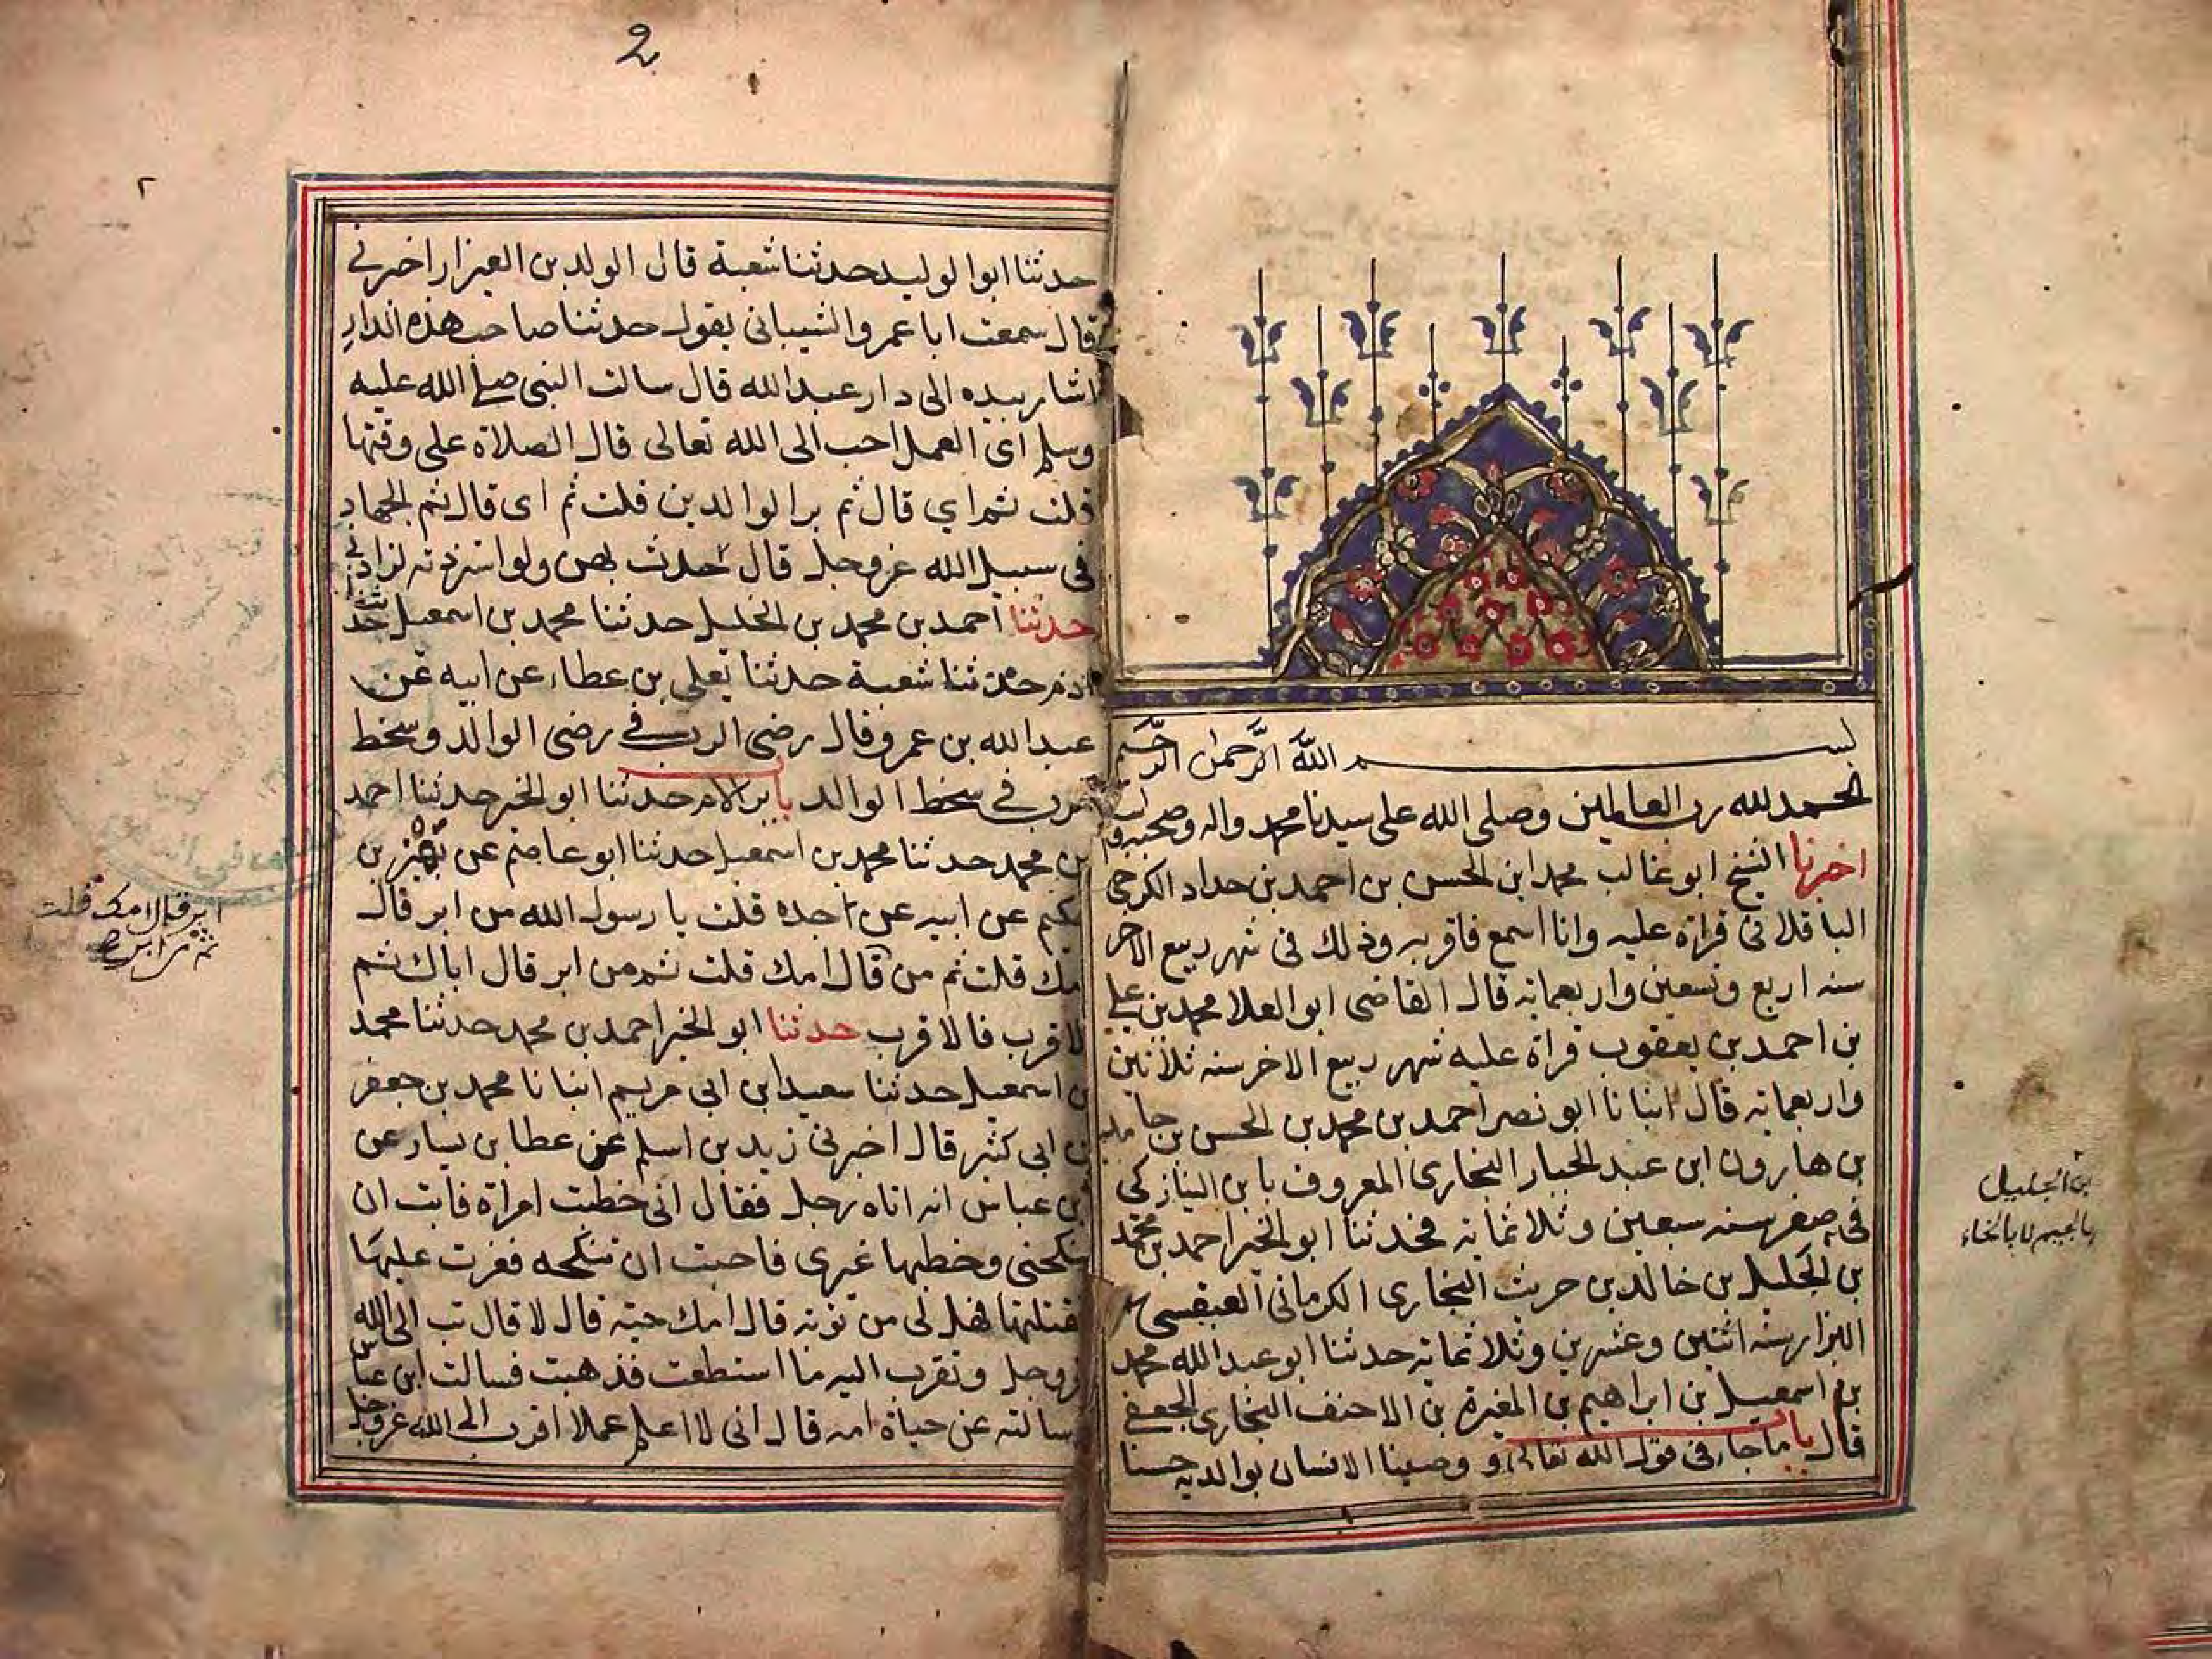 بسم الله الرَّحمٰن الرَّحيم
الحمد لله رب العالمين وصلى الله على سيدنا محمد واله وصحبه
اخبرنا الشيخ ابو غالب محمد ابن الحسن بن احمد بن حداد الكرجى
الباقلانى قراة عليه وانا اسمع فاقر به وذلك فى شهر ربيع الاخر
سنه اربع وتسعين واربعمايه قال القاضى ابو العلا محمد بن على
بن احمد بن يعقوب قراة عليه شهر ربيع الاخر سنه ثلاثين
واربعمايه قال انبانا ابو نصر احمد بن محمد بن الحسن بن حامد
بن هارون ابن عبد الجبار البخارى المعروف بابن النيازكى
فى صفر سنه سبعين وثلاثمايه فحدثنا ابو الخير احمد بن محمد
بن الجليل بن خالد بن حريث البخارى الكرمانى العبقسى
البزار سنه اثنين وعشرين وثلاثمايه حدثنا ابو عبد الله محمد
بن اسمعيل بن ابراهيم بن المغيرة بن الاحنف البخارى الجعفى
قال باب ما جاء فى قول الله تعالى ووصينا الانسان بوالديه حسنا
بن الجليل
بالجيم لا بالخاء
2
٢
حدثنا ابو الوليد حدثنا شعبة قال الولد بن العيزار اخبرنى
قال سمعت ابا عمرو الشيبانى يقول حدثنا صاحب هذه الدار
اشار بيده الى دار عبد الله قال سالت النبى صلى الله عليه
وسلم اى العمل احب الى الله تعالى قال الصلاة على وقتها
قلت ثم اي قال ثم بر الوالدين قلت ثم اى قال ثم الجهاد
فى سبيل الله عز وجل قال حدث بهن ولو استزدته لزادنى
حدثنا احمد بن محمد بن الخليل حدثنا محمد بن اسمعيل حدثنا
ادم حدثنا شعبة حدثنا يعلى بن عطاء عن ابيه عن
عبد الله بن عمرو قال رضى الرب فى رضى الوالد وسخط
الرب فى سخط الوالد باب بر الام حدثنا ابو الخير حدثنا احمد
بن محمد حدثنا محمد بن اسمعيل حدثنا ابو عاصم عن بهز بن
حكيم عن ابيه عن جده قلت يا رسول الله من ابر قال
امك قلت ثم من قال امك قلت ثم من ابر قال اباك ثم
الاقرب فالاقرب حدثنا ابو الخير احمد بن محمد حدثنا محمد
بن اسمعيل حدثنا سعيد ابن ابى مريم انبانا محمد بن جعفر
بن ابى كثير قال اخبرنى زيد بن اسلم عن عطا بن يسار عن
ابن عباس انه اتاه رجل فقال انى خطبت امراة فابت ان
تنكحنى وخطبها غيرى فاحبت ان تنكحه فغرت عليها
فقتلتها فهل لى من توبه قال امك حيه قال لا قال تب الى الله
عز وجل وتقرب اليه ما استطعت فذهبت فسالت ابن عباس
سالته عن حياة امه قال انى لا اعلم عملا اقرب الى الله عز وجل
ابر قال امك قلت
ثم من ابر